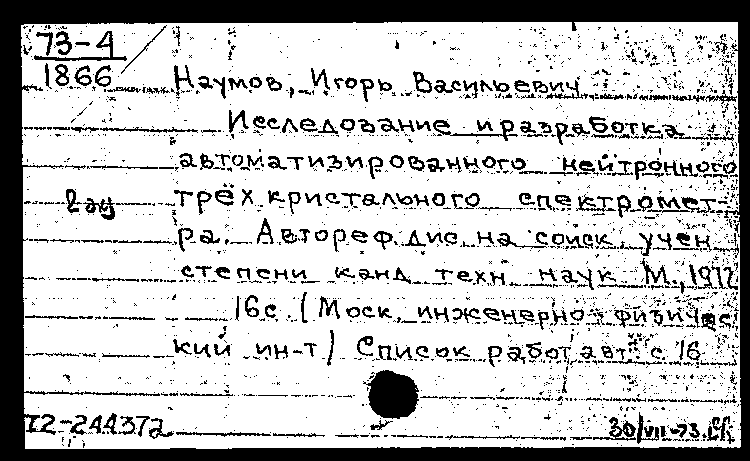 73-4
1866
Наумов, Игорь Васильевич
Исследование и разработка
автоматизированного нейтронного
трёхкристального спектромет-
ра. Автореф. дис. на соиск. учен.
степени канд. техн. наук. М., 1972
16с. (Моск. инженерно-физичес
кий ин-т) Список работ авт.: с 16
Т2-244372
30/VII-73.